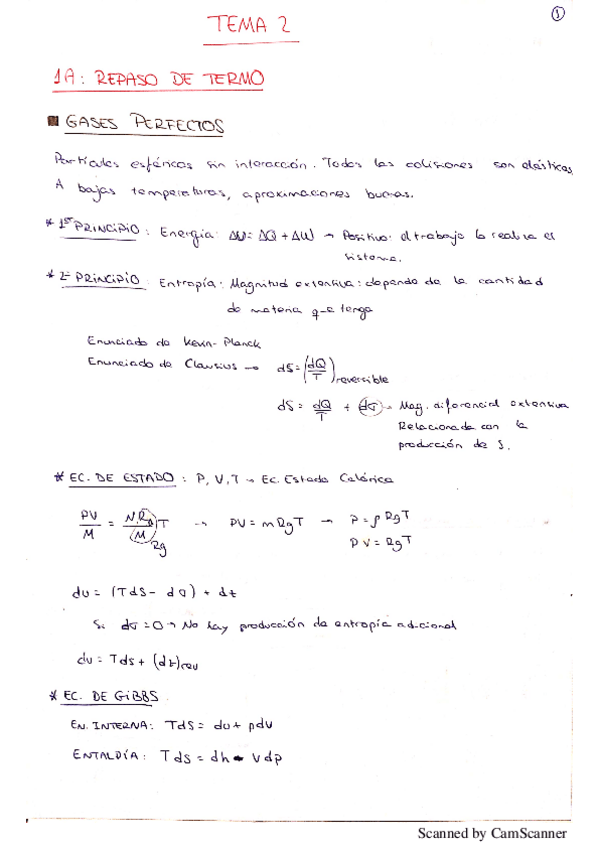 1
TEMA 2
1A: REPASO DE TERMO
GASES PERFECTOS
Partículas esféricas sin interacción. Todas las colisiones son elásticas.
A bajas temperaturas, aproximaciones buenas.
* 1er PRINCIPIO: Energía: ΔU = ΔQ + ΔW → Positivo: el trabajo lo realiza el
sistema.
* 2º PRINCIPIO: Entropía: Magnitud extensiva: depende de la cantidad
de materia que tenga
Enunciado de Kevin-Planck
Enunciado de Clausius → dS = (dQ/T) reversible
dS = dQ/T + dσ → Mag. diferencial extensiva
Relacionada con la
producción de S.
* EC. DE ESTADO: P, V, T → Ec. Estado Calórica
PV/M = N R0/M T → PV = m Rg T → P = ρ Rg T
Rg P V = Rg T
du = (TdS - dσ) + dt
Si dσ = 0 → No hay producción de entropía adicional
du = Tds + (dt)rev
* EC. DE GIBBS
EN. INTERNA: TdS = du + pdv
ENTALDÍA: TdS = dh - Vdp
Scanned by CamScanner